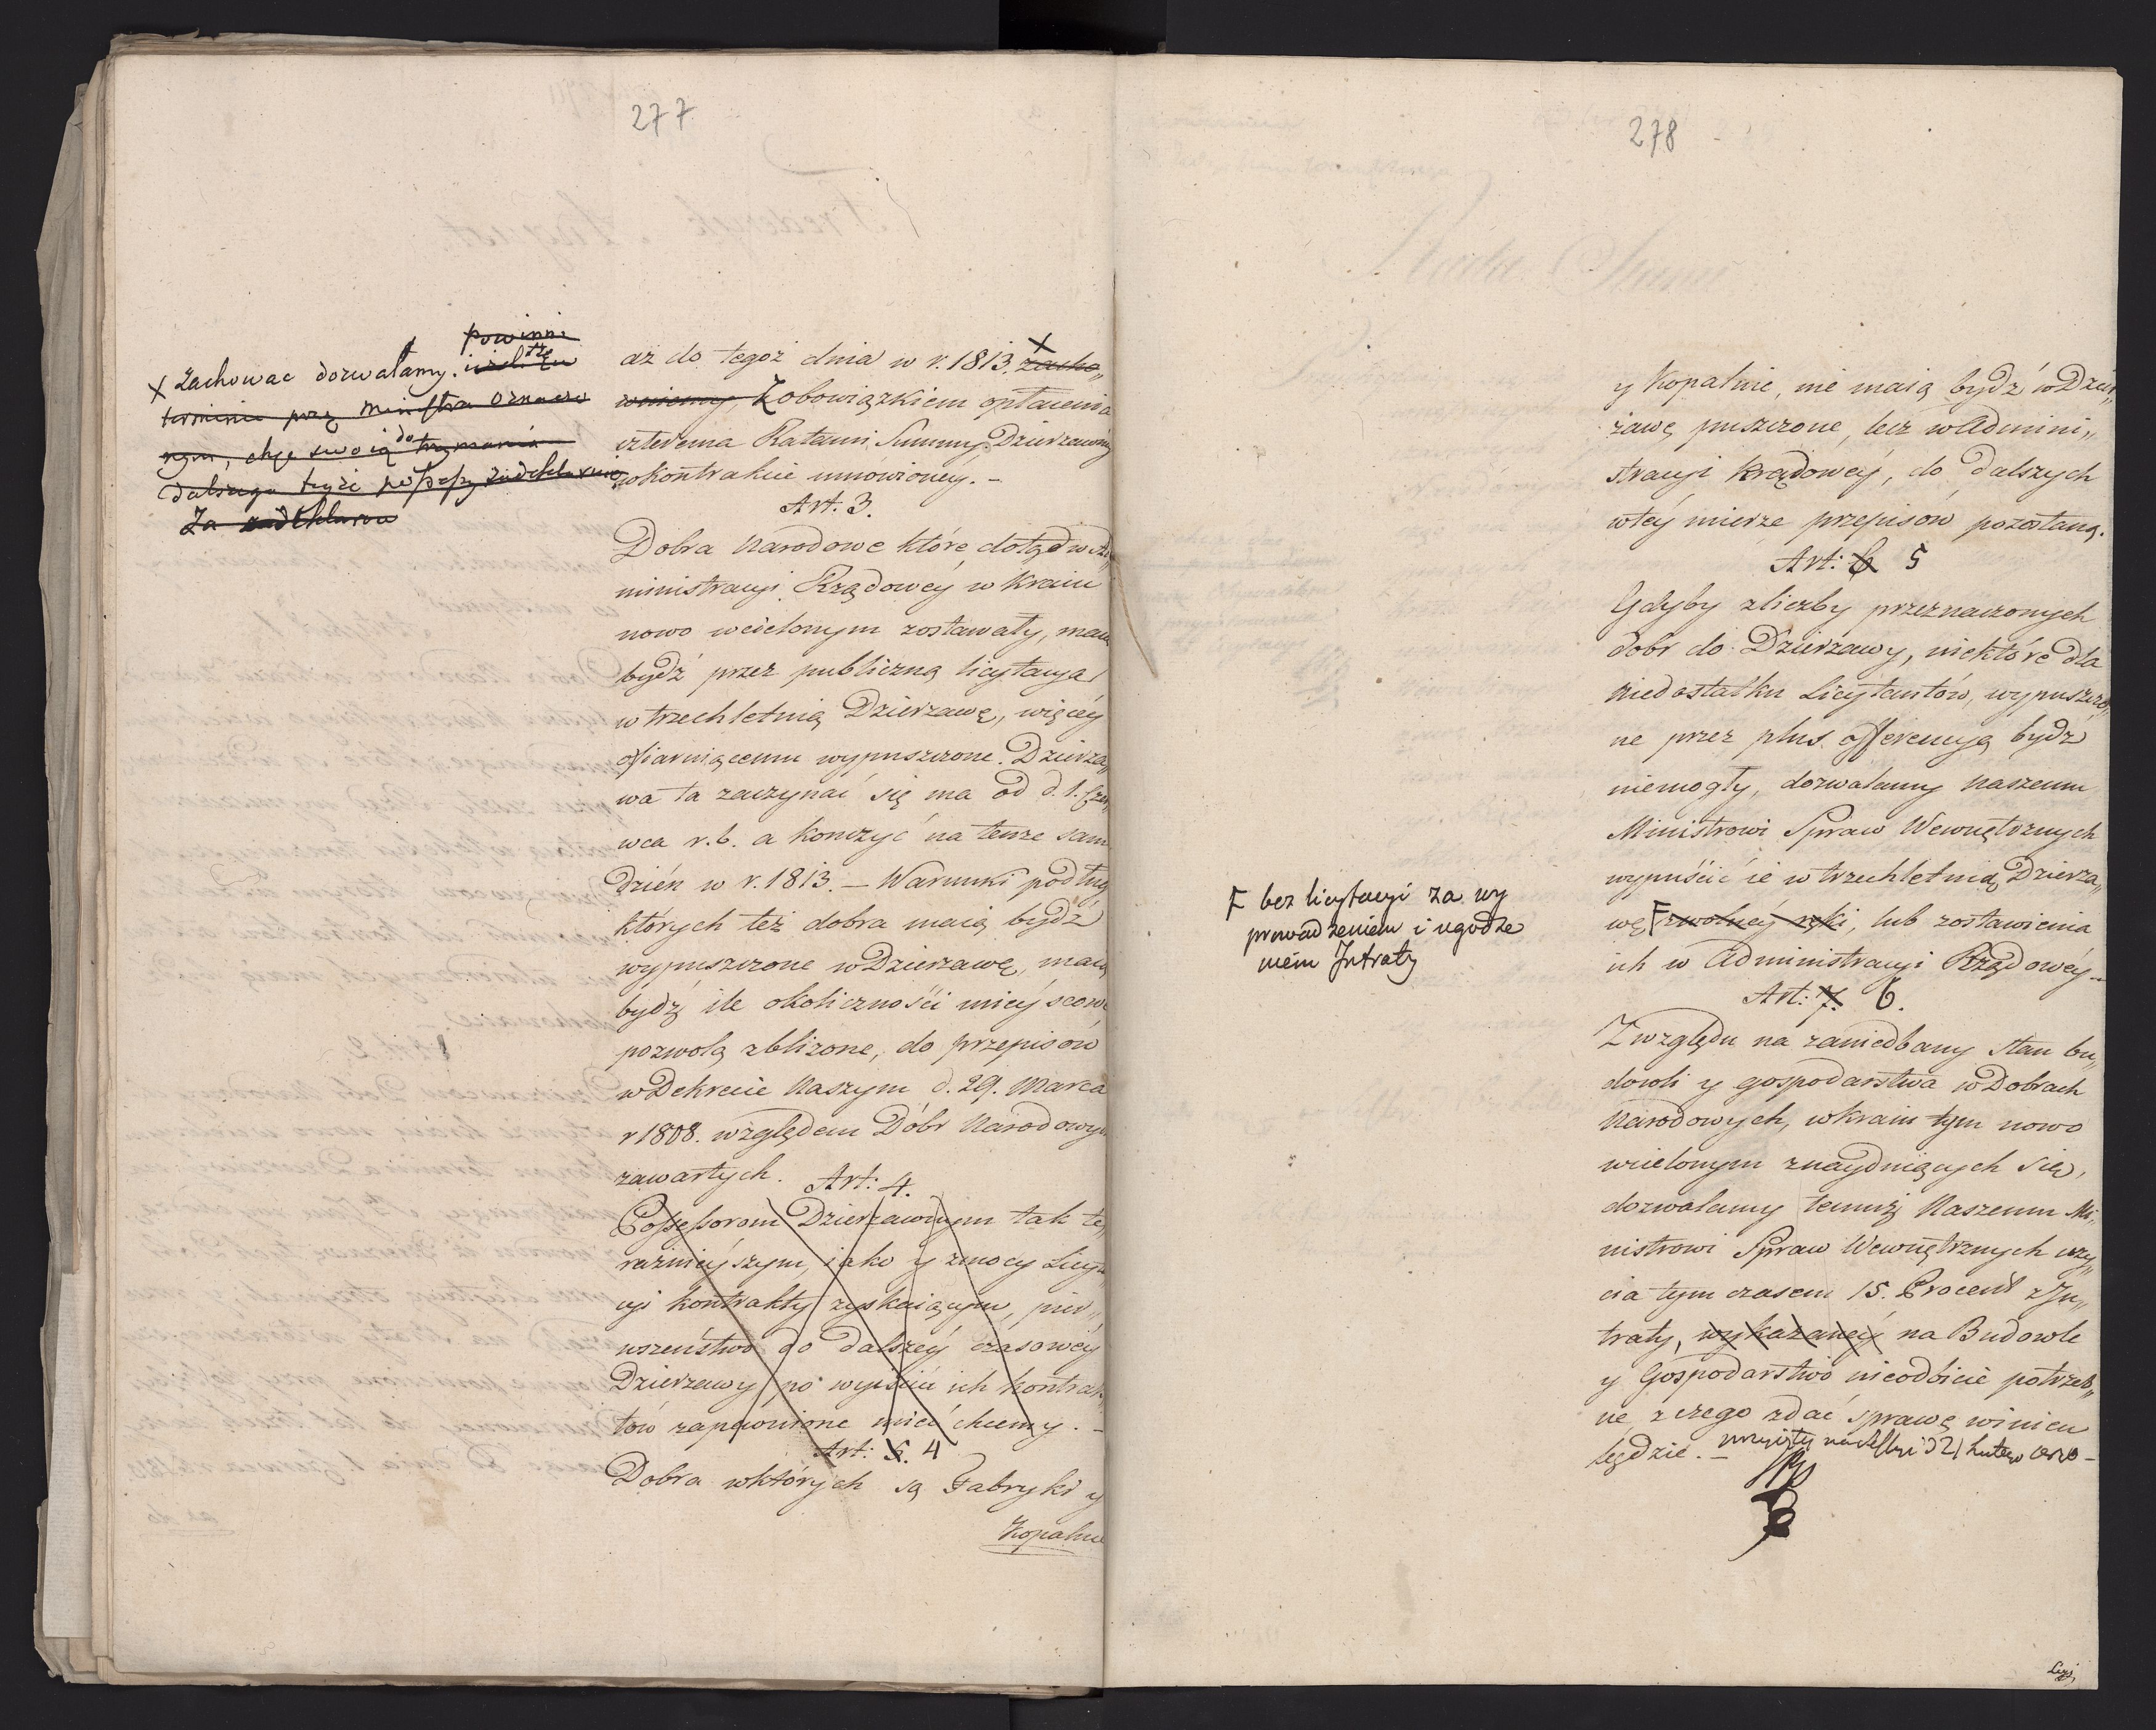 277
powinni
X zachować dozwalamy.
terminie przez Ministra oznaczo
nym, chęć swoią do trzymania
dalszego teyże possessyi zadeklarowa
Za zadeklarow
aż do tegoż dnia w r. 1813. X zacho„
wuiemy, Z obowiązkiem opłacenia
czterema Ratami Summy Dzierzawney
w kontrakcie umówioney. –
Art. 3.
Dobra Narodowe które dotąd w Ad„
ministracyi Rządowey w Kraiu
nowo wcielonym zostawały, maią
bydź przez publiczną licytacyą
w trzechletnią Dzierzawę, więcey
offiaruiącemu wypuszczone. Dzierza„
wa ta zaczynać się ma od d. 1. Czer„
wca r. b. a kończyć na tenże sam
dzień w r. 1813. – Warunki podług
których też dobra maią bydź
wypuszczone w Dzierzawę, maią
bydź ile okoliczności mieyscowe
pozwolą zbliżone, do przepisów
w Dekrecie Naszym d. 29. Marca
r 1808. względem Dóbr Narodowych
zawartych. Art: 4.
Possessorom Dzierzawnym tak te„
raźnieyszym, iako y z mocy Licyta
cyi kontrakty zyskuiącym, pier„
wszeństwo do dalszey czasowey
Dzierzawy po wyiściu ich kontrak„
tów zapewnione mieć chcemy. –
Art: 5. 4
Dobra w których są Fabryki y
Kopalnie
278
y Kopalnie, nie maią bydź w Dzier„
żawę puszczone, lecz w Admini„
stracyi Rządowey, do dalszych
w tey mierze przepisów pozostaną.
Art: 6 5
Gdyby z liczby przeznaczonych
dobr do Dzierzawy, niektóre dla
niedostatku Licytantów, wypuszczo„
ne przez plus offerencyą bydź
niemogły, dozwalamy Naszemu
Ministrowi Spraw Wewnętrznych
wypuścić ie w trzechletnią Dzierza„
wę F z wolney ręki, lub zostawienia
ich w Administracyi Rządowey –
F bez licytacyi za wy
prowadzeniem i ugodze
niem Intraty
Art: 7. 6.
Z względu na zaniedbany stan bu„
dowli y gospodarstwa w Dobrach
Narodowych, w kraiu tym nowo
wcielonym znayduiących się,
dozwalamy temuż Naszemu Mi„
nistrowi Spraw Wewnętrznych uży„
cia tym czasem 15. Procent z In„
traty, wykazaney na Budowle
y Gospodarstwo nieodbicie potrzeb„
ne z czego zdać sprawę winien
będzie. – przyięty na Sessyi d 21 Lutego 1810 –